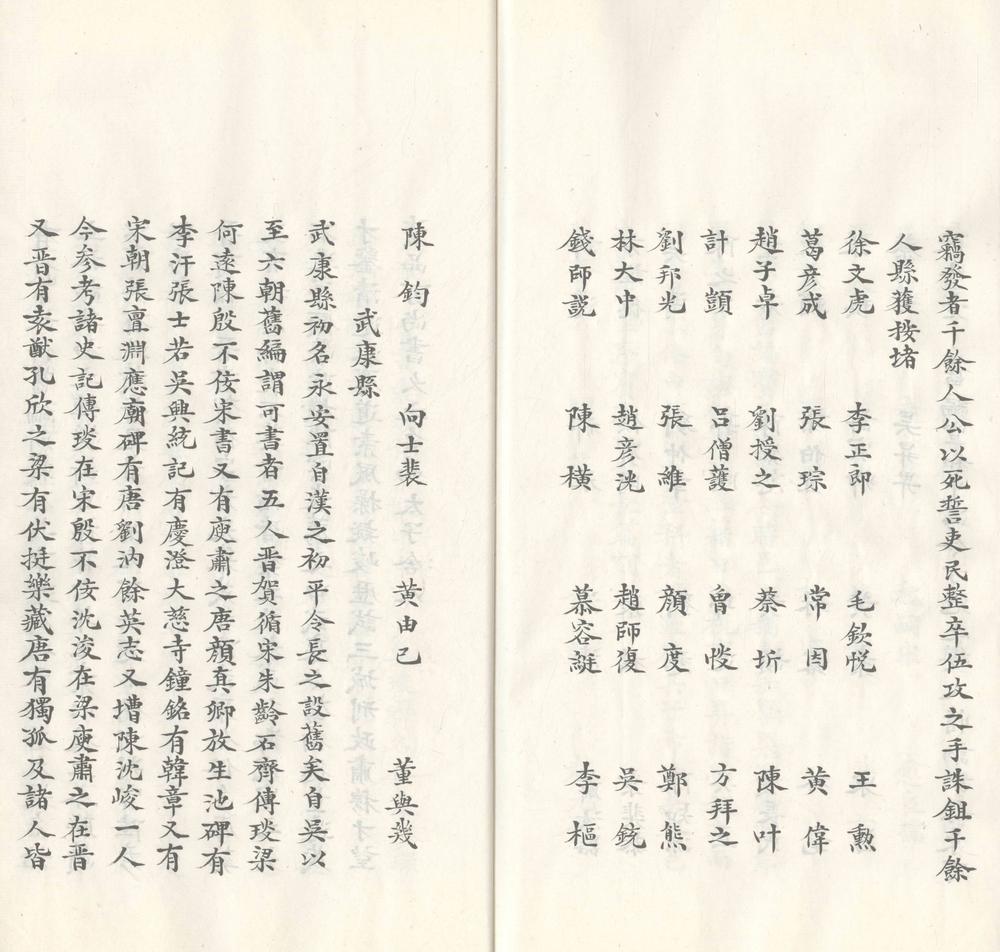 竊發者千餘人公以死誓吏民整卒伍攻之手誅鉏千餘
人縣獲按堵
徐文虎 李正卽 毛欽悅 王勲
葛彦成 張琮 常囙 黄偉
趙子卓 劉授之 蔡圻 陳叶
計顗 吕僧護 曾㥄 方拜之
劉邦光 張維 顔度 鄭熊
林大中 趙彦洸 趙師復 吳銃
錢師説 陳横 慕容綎 李樞
陳鈞 向士裴 黄由己 董與幾
武康縣
武康縣初名永安置自漢之初平令長之設舊矣自吳以
至六朝舊編謂可書者五人晋賀循宋朱齡石齊傅琰梁
何逺陳殷不佞宋書又有庾肅之唐顔真卿放生池碑有
李汗張士若吳興統記有慶澄大慈寺鐘銘有韓章又有
宋朝張亶淵應廟碑有唐劉汭餘英志又增陳沈峻一人
今參考諸史記傅琰在宋殷不佞沈浚在梁庾肅之在晋
又晋有袁猷孔欣之梁有伏挺樂藏唐有獨孤及諸人皆